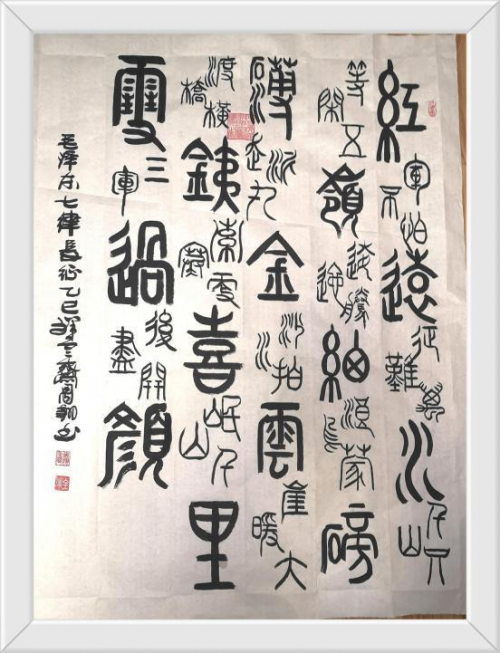 紅軍不怕遠征難萬水千山只
等閑五嶺逶迤騰細浪烏蒙磅
礴走泥丸金沙水拍雲崖暖大
渡橋橫銕索寒更喜岷山千里
雪三軍過後盡開顏
毛澤东七律長征乙巳齋周书